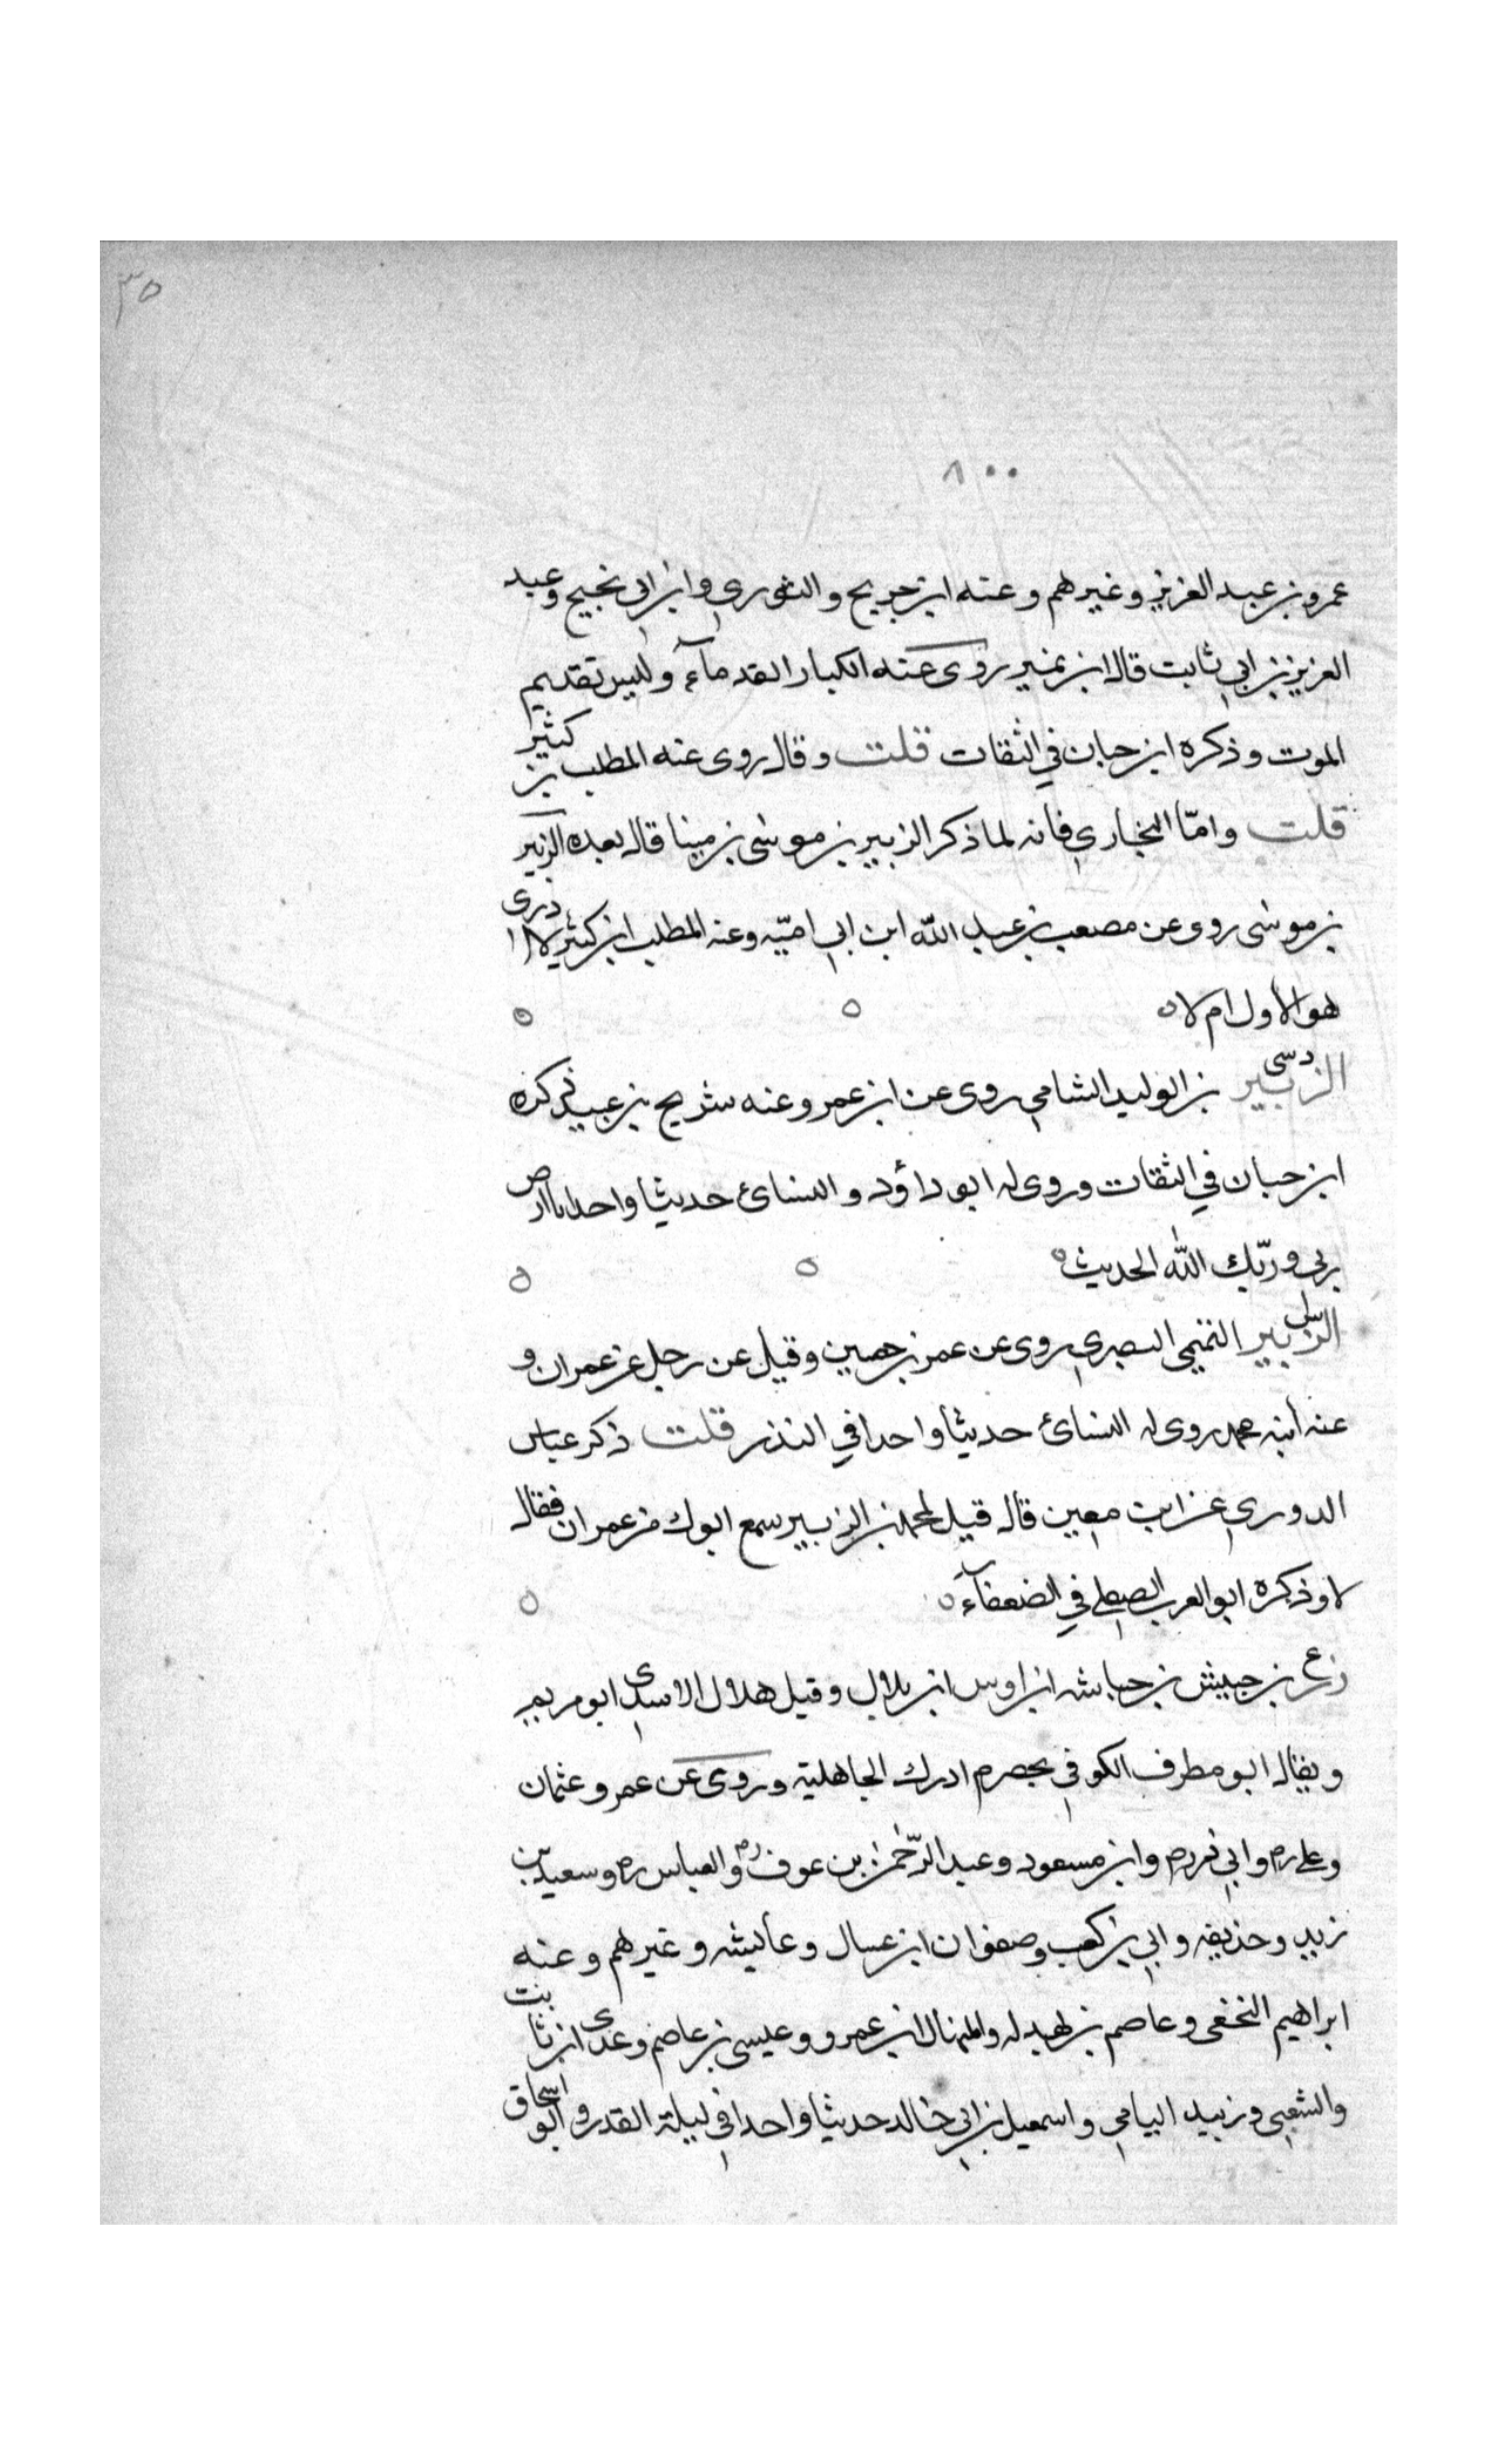 ٣٥
٨٠٠
عمرو بن عبد العزيز وغيرهم وعنه ابن جريج والثوري وابن ابي نجيح وعبد
العزيز بن ابي ثابت قال ابن نمير روى عنه الكبار القدمآء وليس تقديم
الموت وذكره ابن حبان في الثقات قلت وقال روى عنه المطلب بن كثير
قلت وامّا البخاري فانه لما ذكر الزبير بن موسى بن مينا قال بعده الزبير
بن موسى روى عن مصعب بن عبد الله ابن ابي اميّه وعنه المطلب ابن كثير لا ادرى
هو الاول ام لا
دسى
الزبير بن الوليد الشامي روى عن ابن عمر وعنه شريح بن عبيد ذكره
ابن حبان في الثقات وروى له ابو داؤد والنسائ حديثا واحدا يا ارض
ربي وربّك الله الحديث
الزبير التميمي البصري روى عن عمر بن حصين وقيل عن رجل عن عمران و
عنه ابنه محمد روى له النسائ حديثا واحدا في النذر قلت ذكر عباس
الدوري عن ابن معين قال قيل لمحمد بن الزبير سمع ابوك من عمران فقال
لا وذكره ابو العرب في الضعفآء
ع
زر بن حبيش بن حباشه ابن اوس ابن بلال وقيل هلال الاسدي ابو مريم
ويقال ابو مطرف الكوفي مخضرم ادرك الجاهلية وروى عن عمر وعثمان
وعلي رض وابي ذر رض وابن مسعود وعبد الرّحمٰن بن عوف رض والعباس رض وسعيد بن
زيد وحذيفه وابي بن كعب وصفوان ابن عسال وعائيشه وغيرهم وعنه
ابراهيم النخعي وعاصم بن بهدله والمنهال ابن عمرو وعيسى بن عاصم وعدى ابن ثابت
والشعبي وزبيد اليامي واسمعيل بن ابي خالد حديثا واحدا في ليلة القدر وابو اسحاق